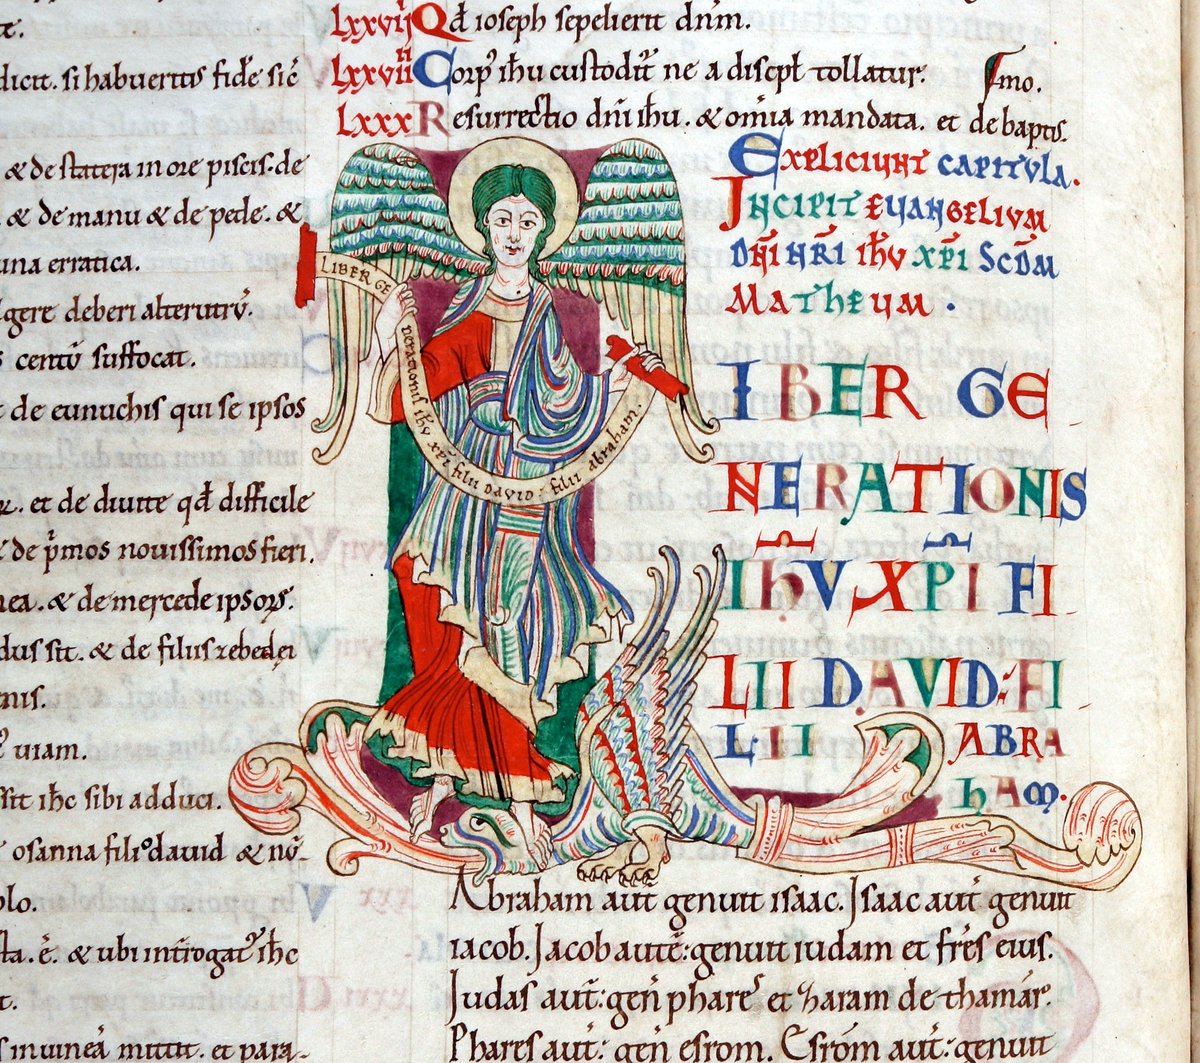 t.
dicit. si habueritis fidē sic̄
& de statera in ore piscis. de
& de manu & de pede. &
una erratica.
lgere deberi alterutrū.
s centū suffocat.
t de eunuchis qui se ipsos
et de divite qđ difficile
de pͥmos novissimos fieri.
nea. & de mercede ipsoꝝ.
dus sit. & de filiis zebedei
nis.
viam.
ssit ihc sibi adduci.
osanna filio david & nō-
olo.
sta. ē. & ubi int̄rogatꝰ ihc
t.
s in vineā mittit. et para-
Lxxvij Qđ ioseph sepelierit dn̄m.
Lxxviiii Corpꝰ ihu custodit᷑ ne a discipł tollatur.
smo.
Lxxx Resurrectio dn̄i ihu. & om̄ia mandata. et de baptis-
Expliciunt capitula.
Incipit evangelium
dn̄i nr̄i ih̄u xp̄i scd̄m
Matheum.
LIBER GE
nerationis ih̄u xp̄i filii DAVID: filii abraham.
IBER GE
NERATIONIS
IH̄V XP̄I FI
LII DAVID: FI
LII ABRA
HAM.
Abraham aut̄ genuit isaac. Isaac aut̄ genuit
iacob. Jacob autē: genuit iudam et fr̄es eius.
Judas aut̄: gen̄ phares et zaram de thamar.
Phares aut̄: gen̄ esrom. Esrom aut̄: genuit